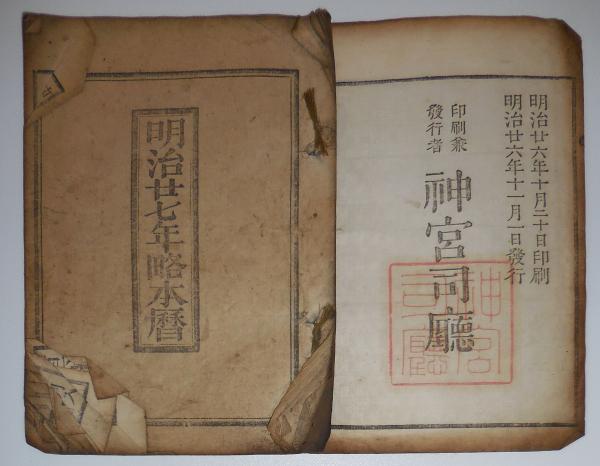 明治廿七年略本暦
明治廿六年十月二十日印刷
明治廿六年十一月一日發行
印刷兼
發行者
神宮司廳
神宮
司廳